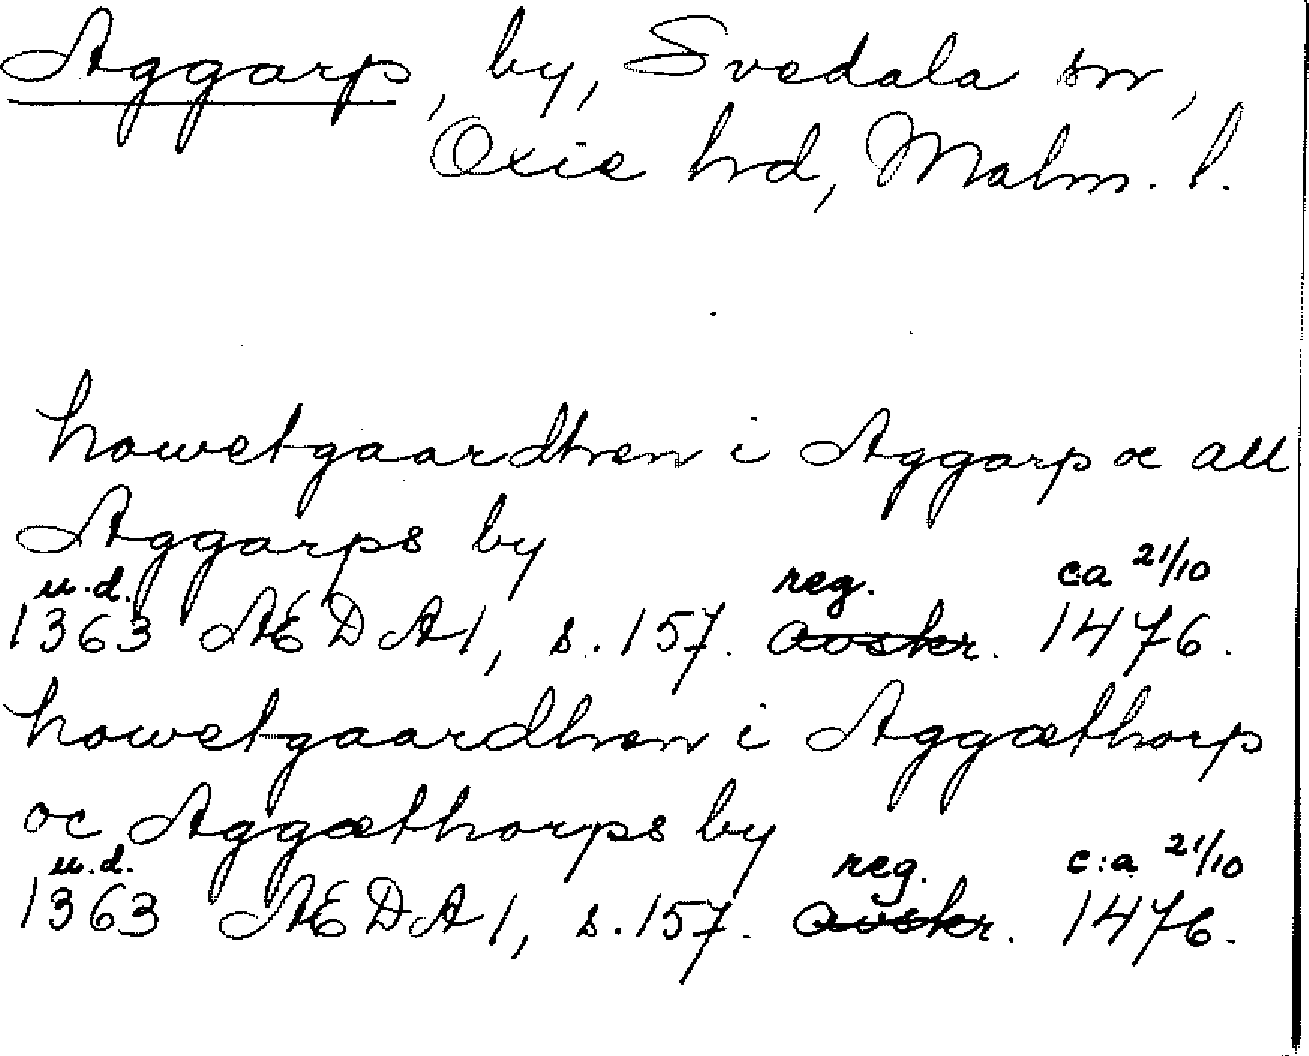 Aggarp, by, Svedala sn,
Oxie hrd, Malm. l.
howetgaardhen i Aggarp oc all
Aggarps by
u.d. reg. ca 21/10
1363 ÆDA 1, s. 157. avskr. 1476.
howetgaardhen i Aggæthorp
oc Aggæthorps by
u.d. reg. c:a 21/10
1363 ÆDA 1, s. 157. avskr. 1476.